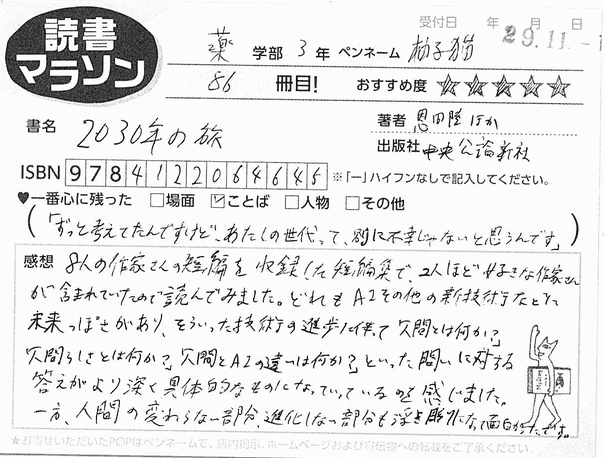 読書
マラソン
受付日 年 月 日
29.11.-1
薬 学部 3年 ペンネーム 柚子猫
86 冊目! おすすめ度 ☆☆☆☆☆
書名 2030年の旅
著者 恩田陸ほか
出版社 中央公論新社
ISBN 9784122064645 ※「ー」ハイフンなしで記入してください。
♥一番心に残った □場面 ☑ことば □人物 □その他
(「ずっと考えてたんですけど、あたしの世代って、別に不幸じゃないと思うんです」)
感想 8人の作家さんの短編を収録した短編集で、2人ほど好きな作家さん
が含まれていたので読んでみました。どれもAIその他の新技術など
未来っぽさがあり、そういった技術の進歩に伴って「人間とは何か?
人間らしさとは何か?人間とAIの違いは何か?」といった問いに対する
答えがより深く具体的なものになっていっているのを感じました。
一方、人間の変わらない部分、進化しない部分も浮き彫りになり面白かったです。
★お寄せいただいたPOPはペンネームで、店内掲示、ホームページおよび宣伝物への転載をご了承ください。